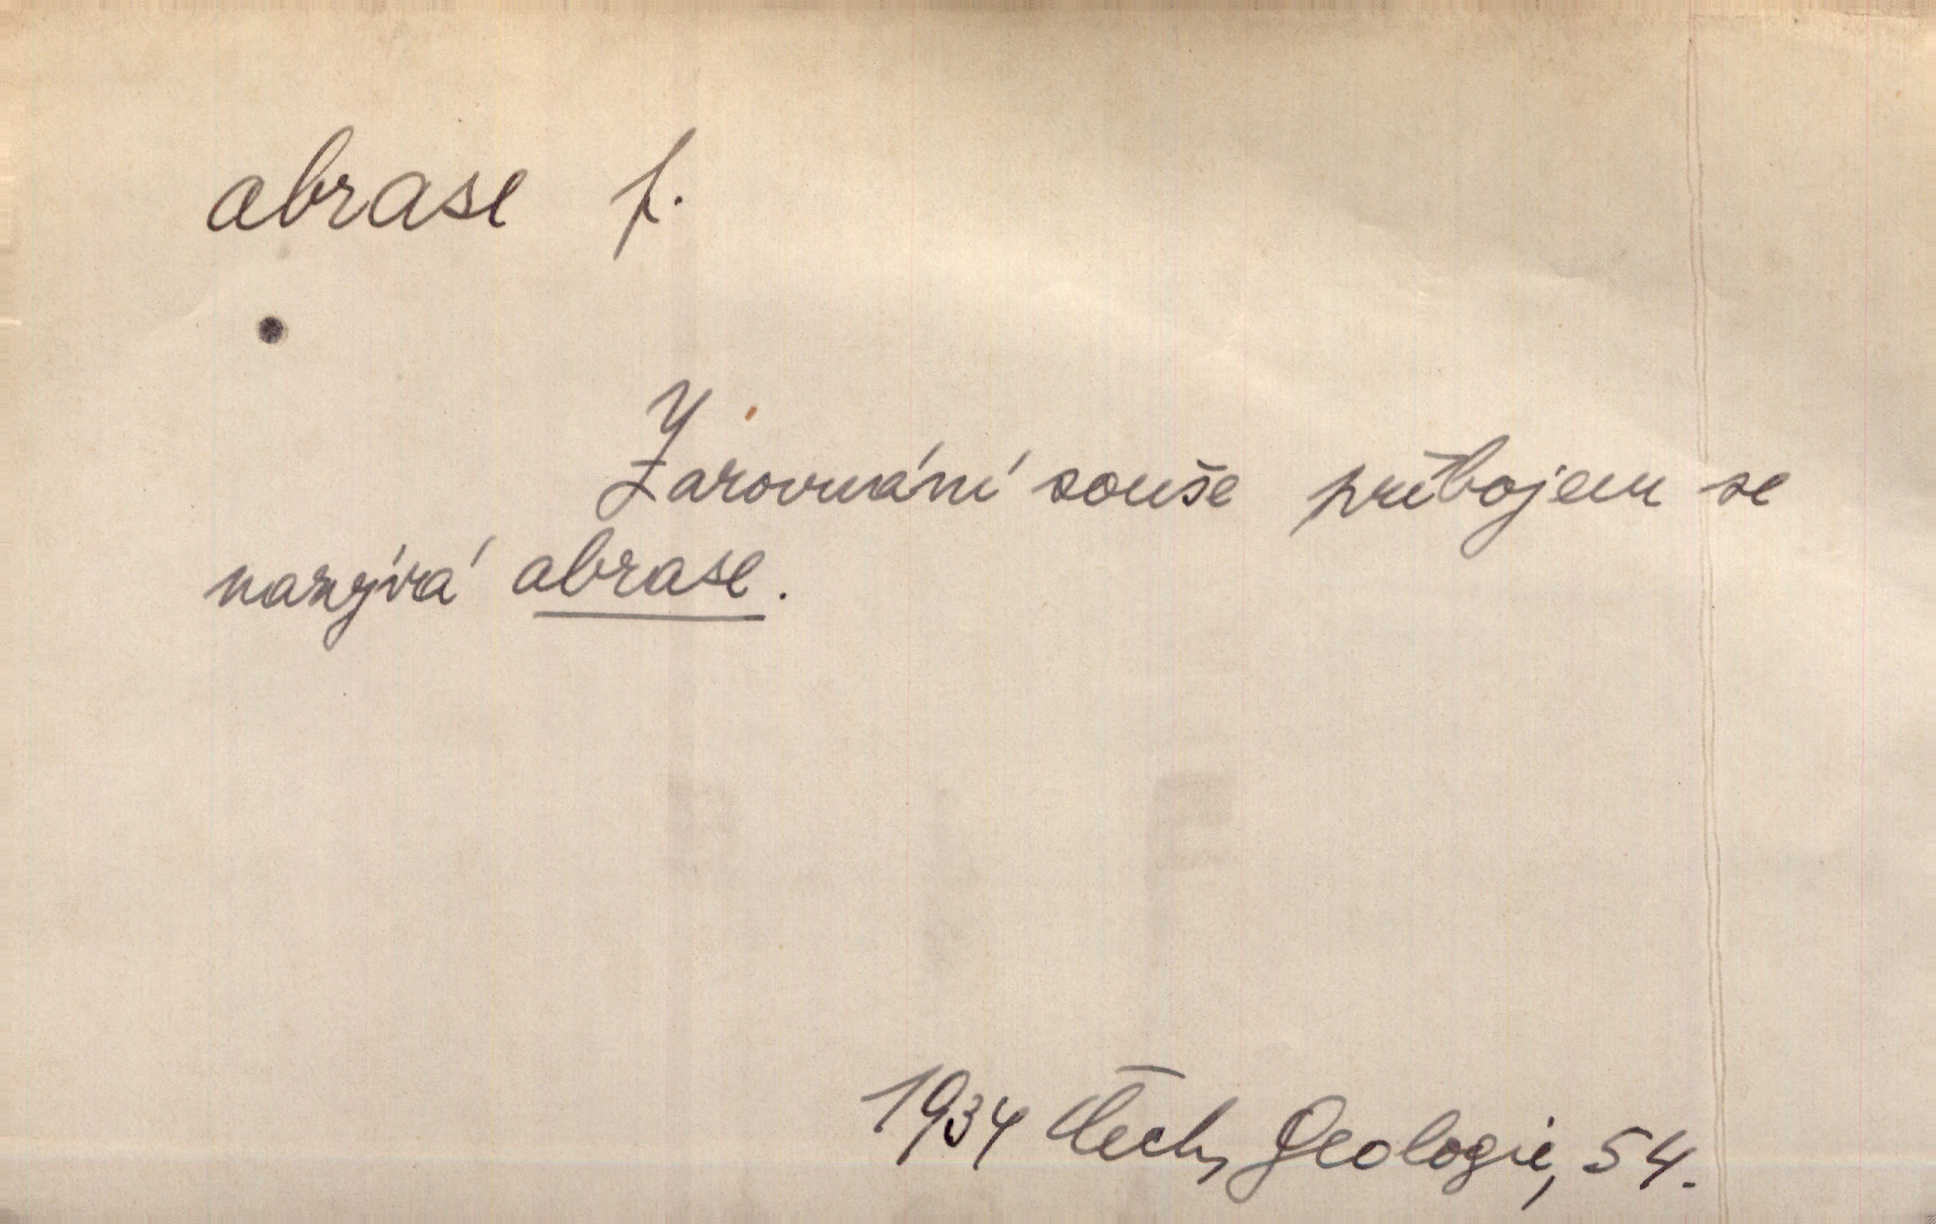 abrase f.
Zarovnání souše příbojem se
nazývá abrase.
1934 Čech, Geologie, 54.